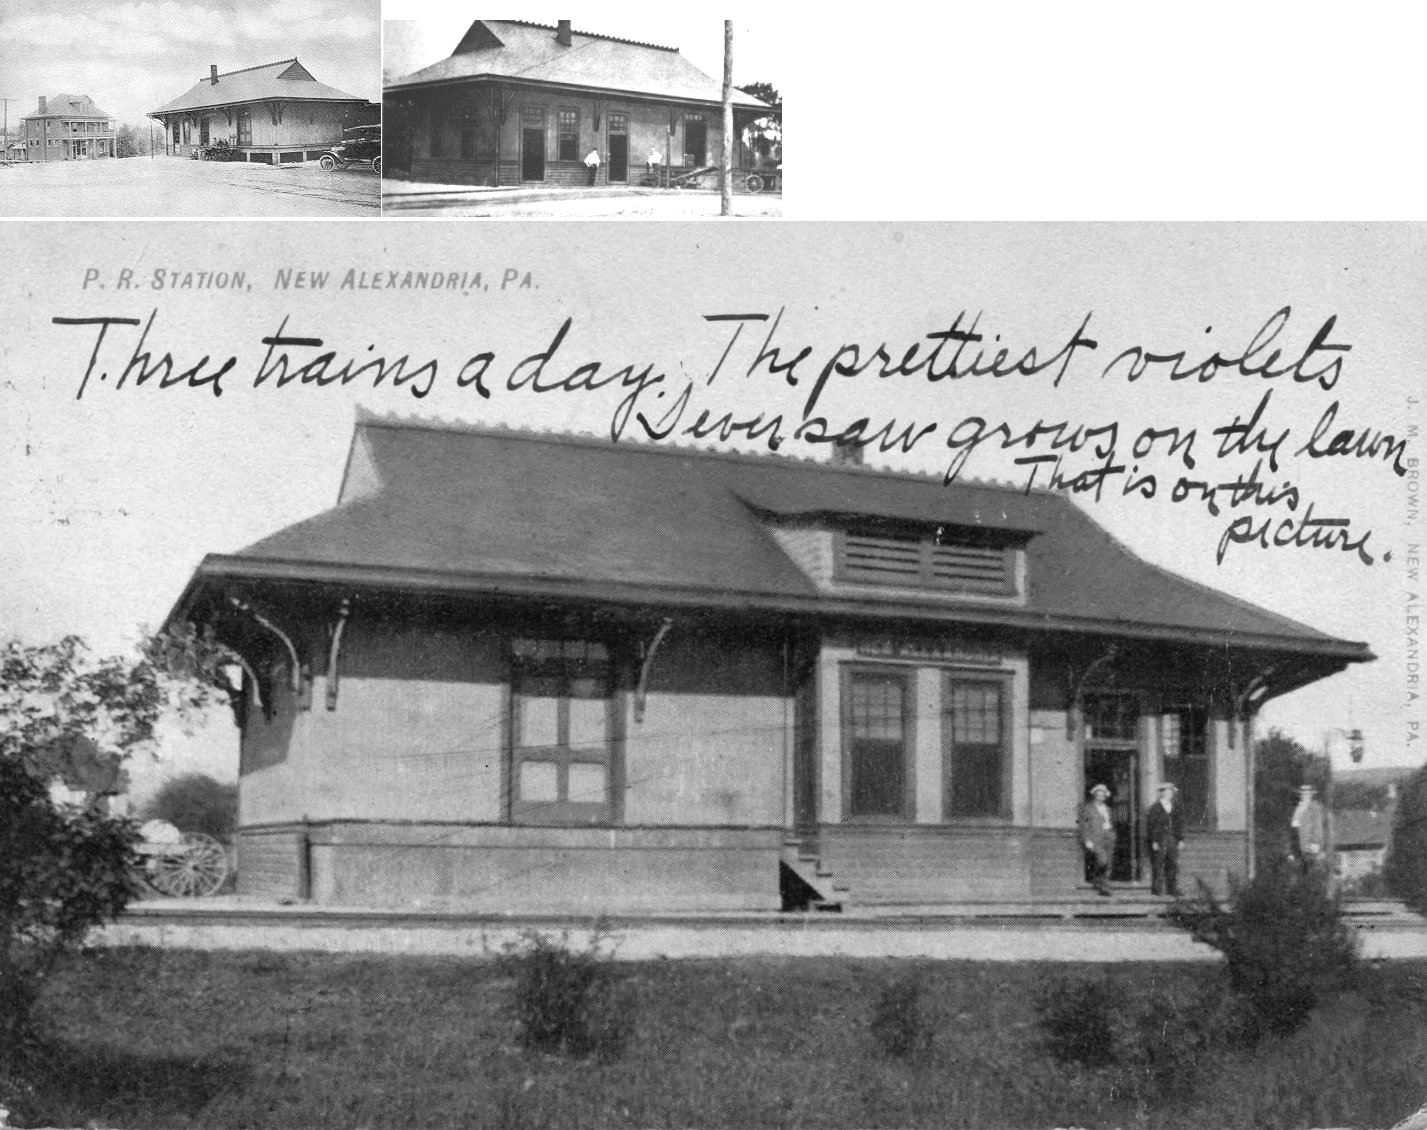 P. R. STATION, NEW ALEXANDRIA, PA.
Three trains a day. The prettiest violets
I ever saw grows on the lawn
That is on this
picture.
J. M. BROWN, NEW ALEXANDRIA, PA.